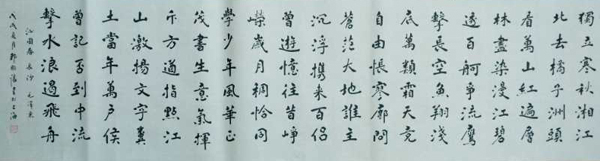 獨立寒秋湘江
北去橘子洲頭
看萬山紅遍層
林盡染漫江碧
透百舸爭流鷹
擊長空魚翔淺
底萬類霜天競
自由悵寥廓問
蒼茫大地誰主
沉浮携來百侶
曾遊憶往昔崢
嶸歲月稠恰同
學少年風華正
茂書生意氣揮
斥方遒指點江
山激揚文字糞
土當年萬戶侯
曾記否到中流
擊水浪遏飛舟
沁園春 長沙 毛澤東
書於上海